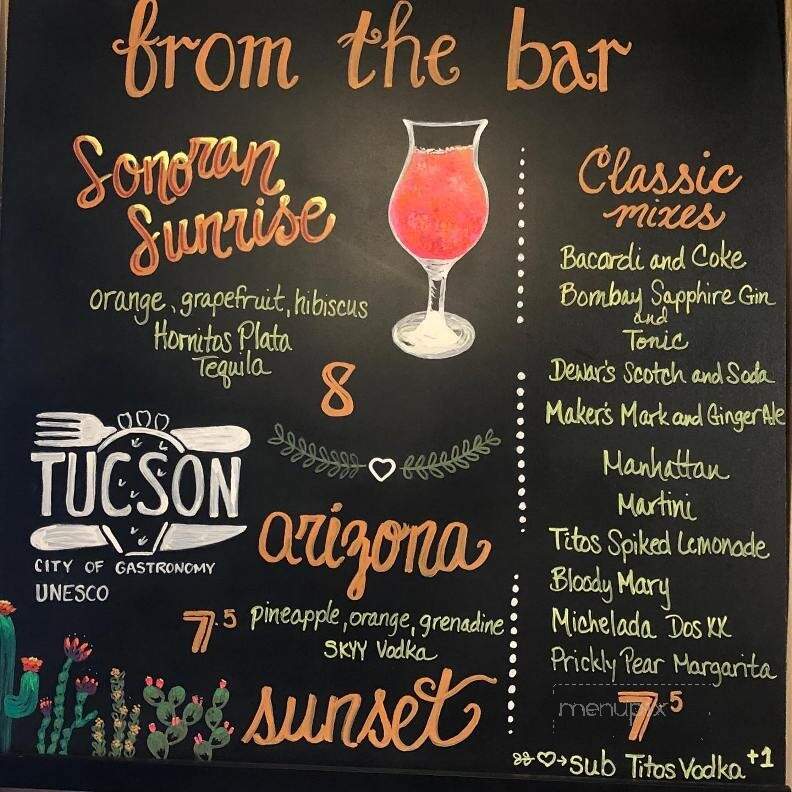 from the bar
Sonoran
Sunrise
orange, grapefruit, hibiscus
Hornitos Plata
Tequila
8
TUCSON
CITY OF GASTRONOMY
UNESCO
arizona
7.5 pineapple, orange, grenadine
SKYY Vodka
sunset
Classic
mixes
Bacardi and Coke
Bombay Sapphire Gin
and
Tonic
Dewar's Scotch and Soda
Maker's Mark and Ginger Ale
Manhattan
Martini
Titos Spiked Lemonade
Bloody Mary
Michelada Dos XX
Prickly Pear Margarita
menupix
7.5
sub Titos Vodka +1